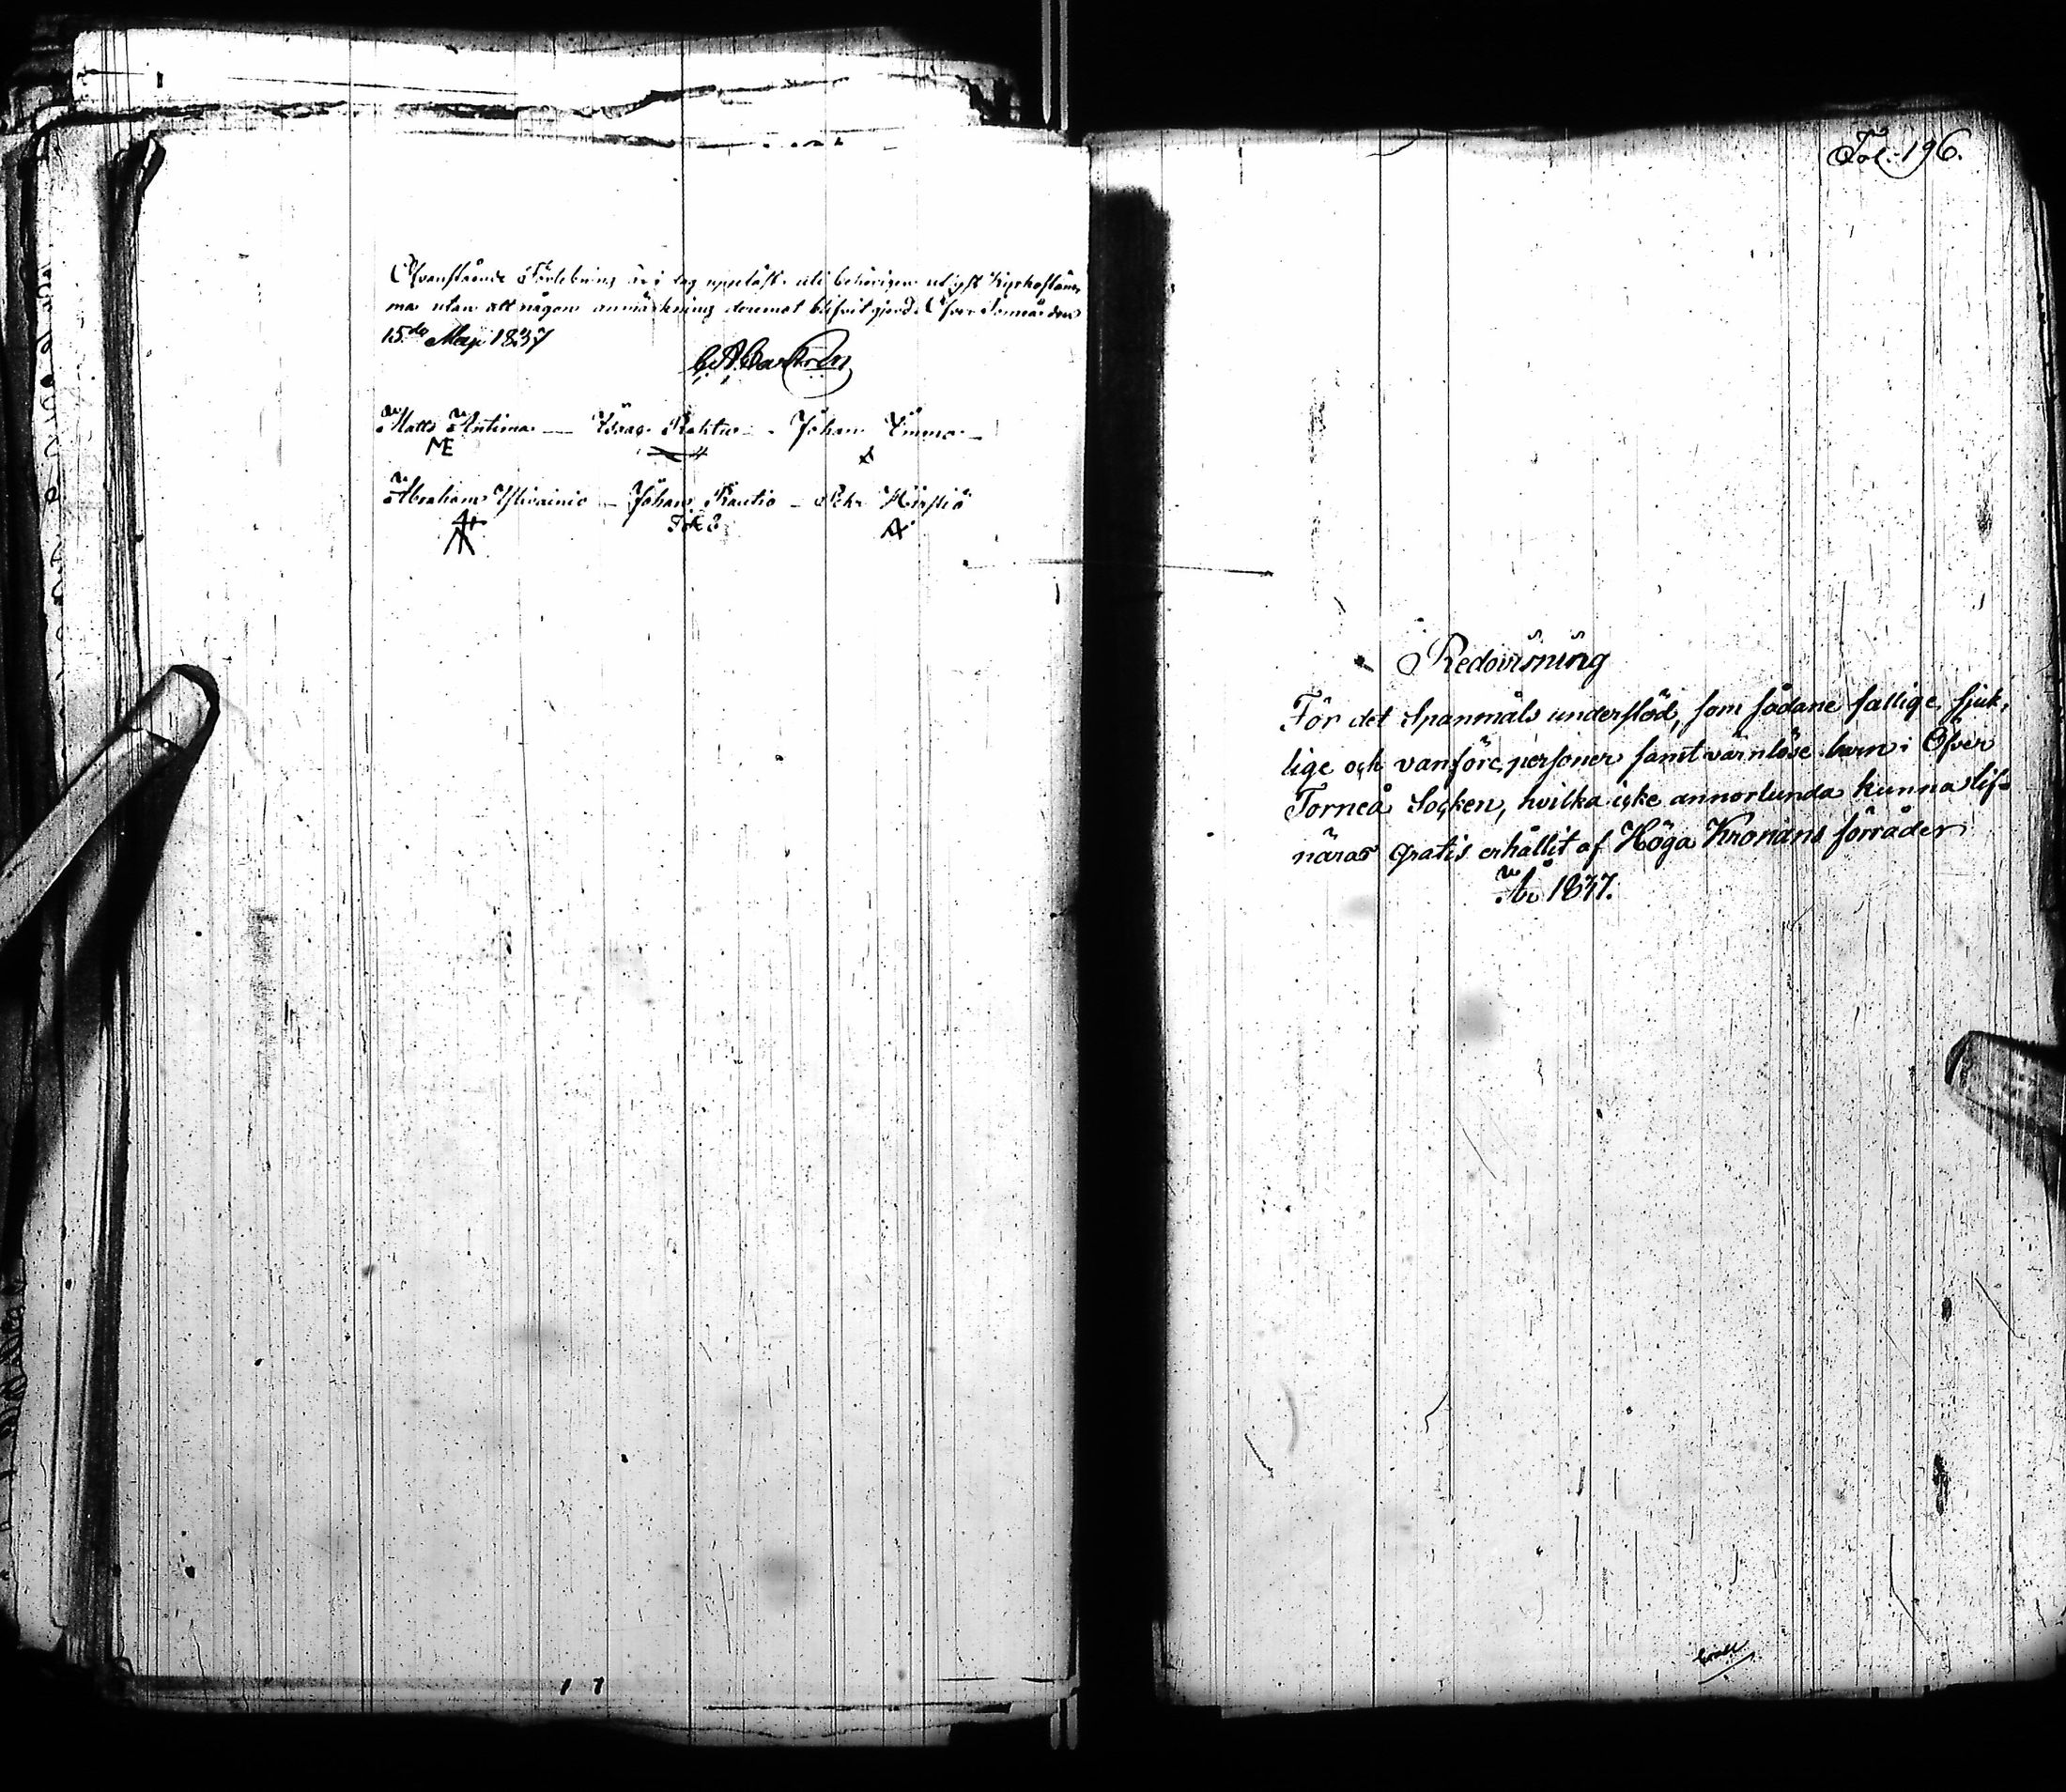 Ofvanstående Fördelning är i dag uppläst uti behörigen utlyst Kyrkostäm-
ma utan att någon anmärkning deremot blifvit gjord. Öfver Torneå den
15de Maji 1837
Matts Antima — Isaac — Johan Emma —
ME
Abraham Ylivainio — Johan Rautio — Petr
Fol. 196.
Redovisning
För det Spanmåls understöd, som sådane fattige, sjuk-
lige och vanföre personer samt värnlöse barn i Öfver
Torneå Socken, hvilka icke annorlunda kunna lif-
näras gratis erhållit af Höga Kronans förråder
År 1837.